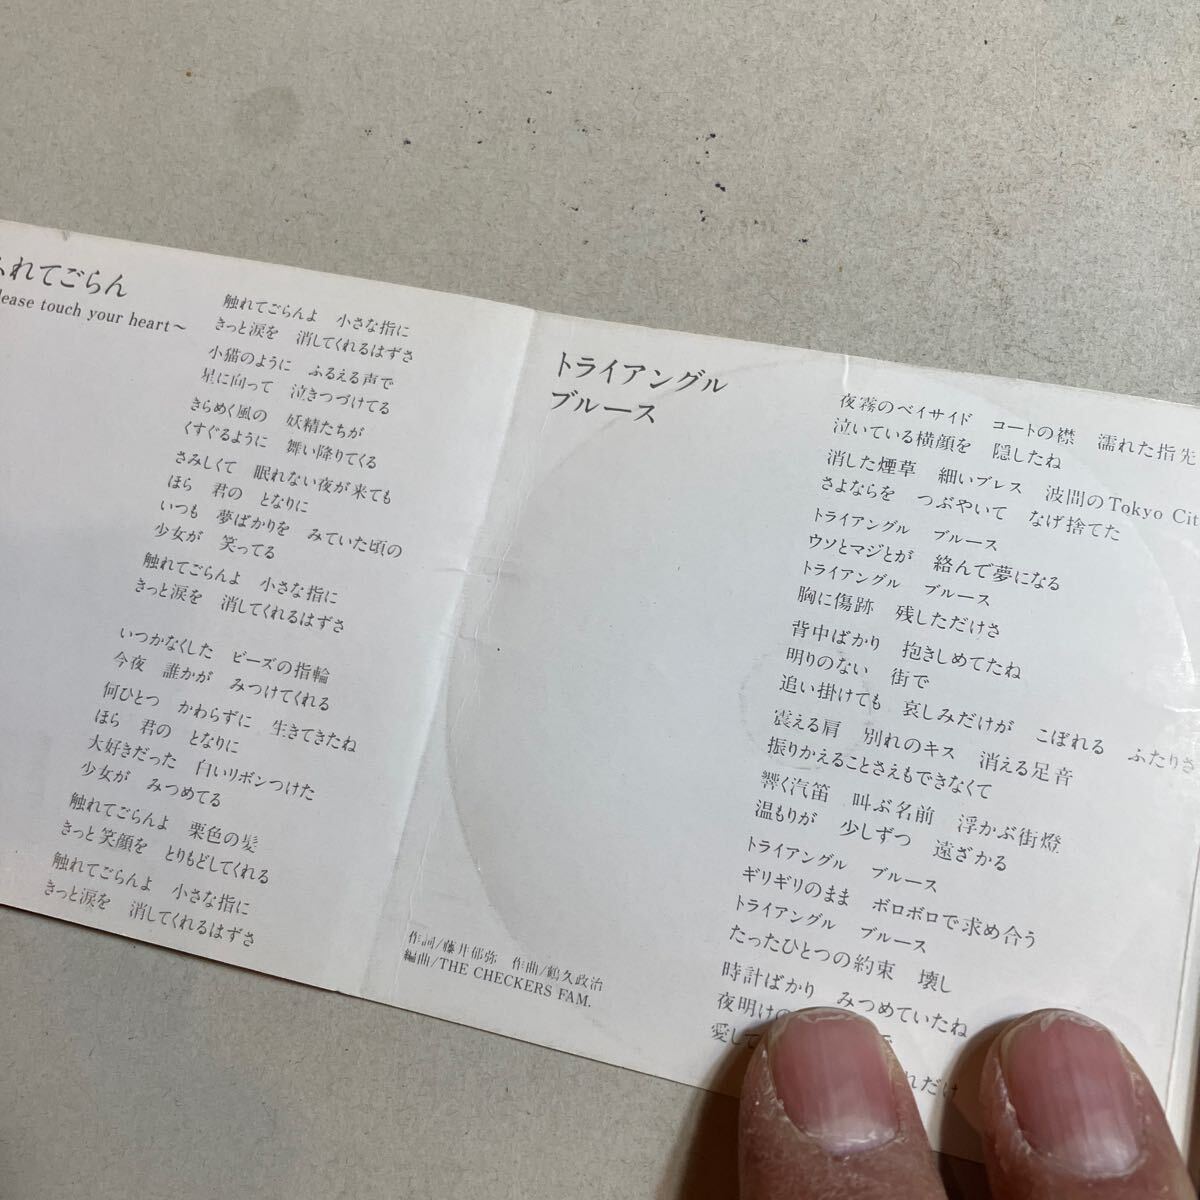 ふれてごらん
lease touch your heart～
触れてごらんよ　小さな指に
きっと涙を　消してくれるはずさ
小猫のように　ふるえる声で
星に向って　泣きつづけてる
きらめく風の　妖精たちが
くすぐるように　舞い降りてくる
さみしくて　眠れない夜が来ても
ほら　君の　となりに
いつも　夢ばかりを　みていた頃の
少女が　笑ってる
触れてごらんよ　小さな指に
きっと涙を　消してくれるはずさ
いつかなくした　ビーズの指輪
今夜　誰かが　みつけてくれる
何ひとつ　かわらずに　生きてきたね
ほら　君の　となりに
大好きだった　白いリボンつけた
少女が　みつめてる
触れてごらんよ　栗色の髪
きっと笑顔を　とりもどしてくれる
触れてごらんよ　小さな指に
きっと涙を　消してくれるはずさ
トライアングル
ブルース
作詞/藤井郁弥　作曲/鶴久政治
編曲/THE CHECKERS FAM.
夜霧のベイサイド　コートの襟　濡れた指先
泣いている横顔を　隠したね
消した煙草　細いブレス　波間のTokyo Cit
さよならを　つぶやいて　なげ捨てた
トライアングル　ブルース
ウソとマジとが　絡んで夢になる
トライアングル　ブルース
胸に傷跡　残しただけさ
背中ばかり　抱きしめてたね
明りのない　街で
追い掛けても　哀しみだけが　こぼれる　ふたりさ
震える肩　別れのキス　消える足音
振りかえることさえもできなくて
響く汽笛　叫ぶ名前　浮かぶ街燈
温もりが　少しずつ　遠ざかる
トライアングル　ブルース
ギリギリのまま　ボロボロで求め合う
トライアングル　ブルース
たったひとつの約束　壊し
時計ばかり　みつめていたね
夜明けの　で
愛して　れだけ